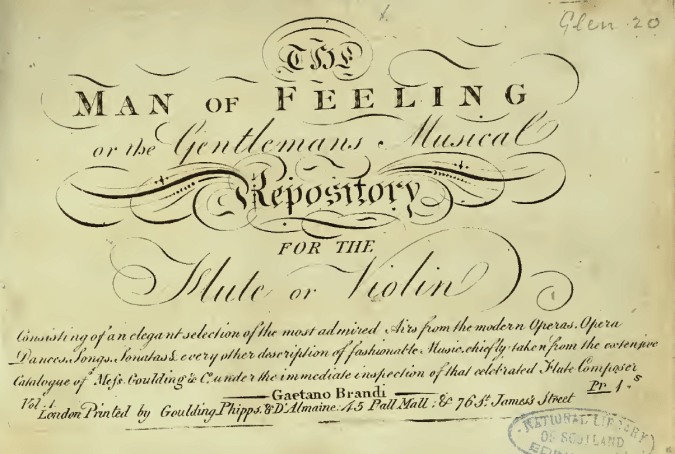 Glen 20
THE
MAN OF FEELING
or the Gentlemans Musical
Repository
FOR THE
Flute or Violin
Consisting of an elegant selection of the most admired Airs from the modern Operas, Opera
Dances, Songs, Sonatas & every other description of fashionable Music, chiefly taken from the extensive
Catalogue of Mess. Goulding & Co. under the immediate inspection of that celebrated Flute Composer
Gaetano Brandi
Vol. 1 Pr. 1s
London Printed by Goulding, Phipps, & D'Almaine, 45 Pall Mall, & 76 St. James's Street
NATIONAL LIBRARY
OF SCOTLAND